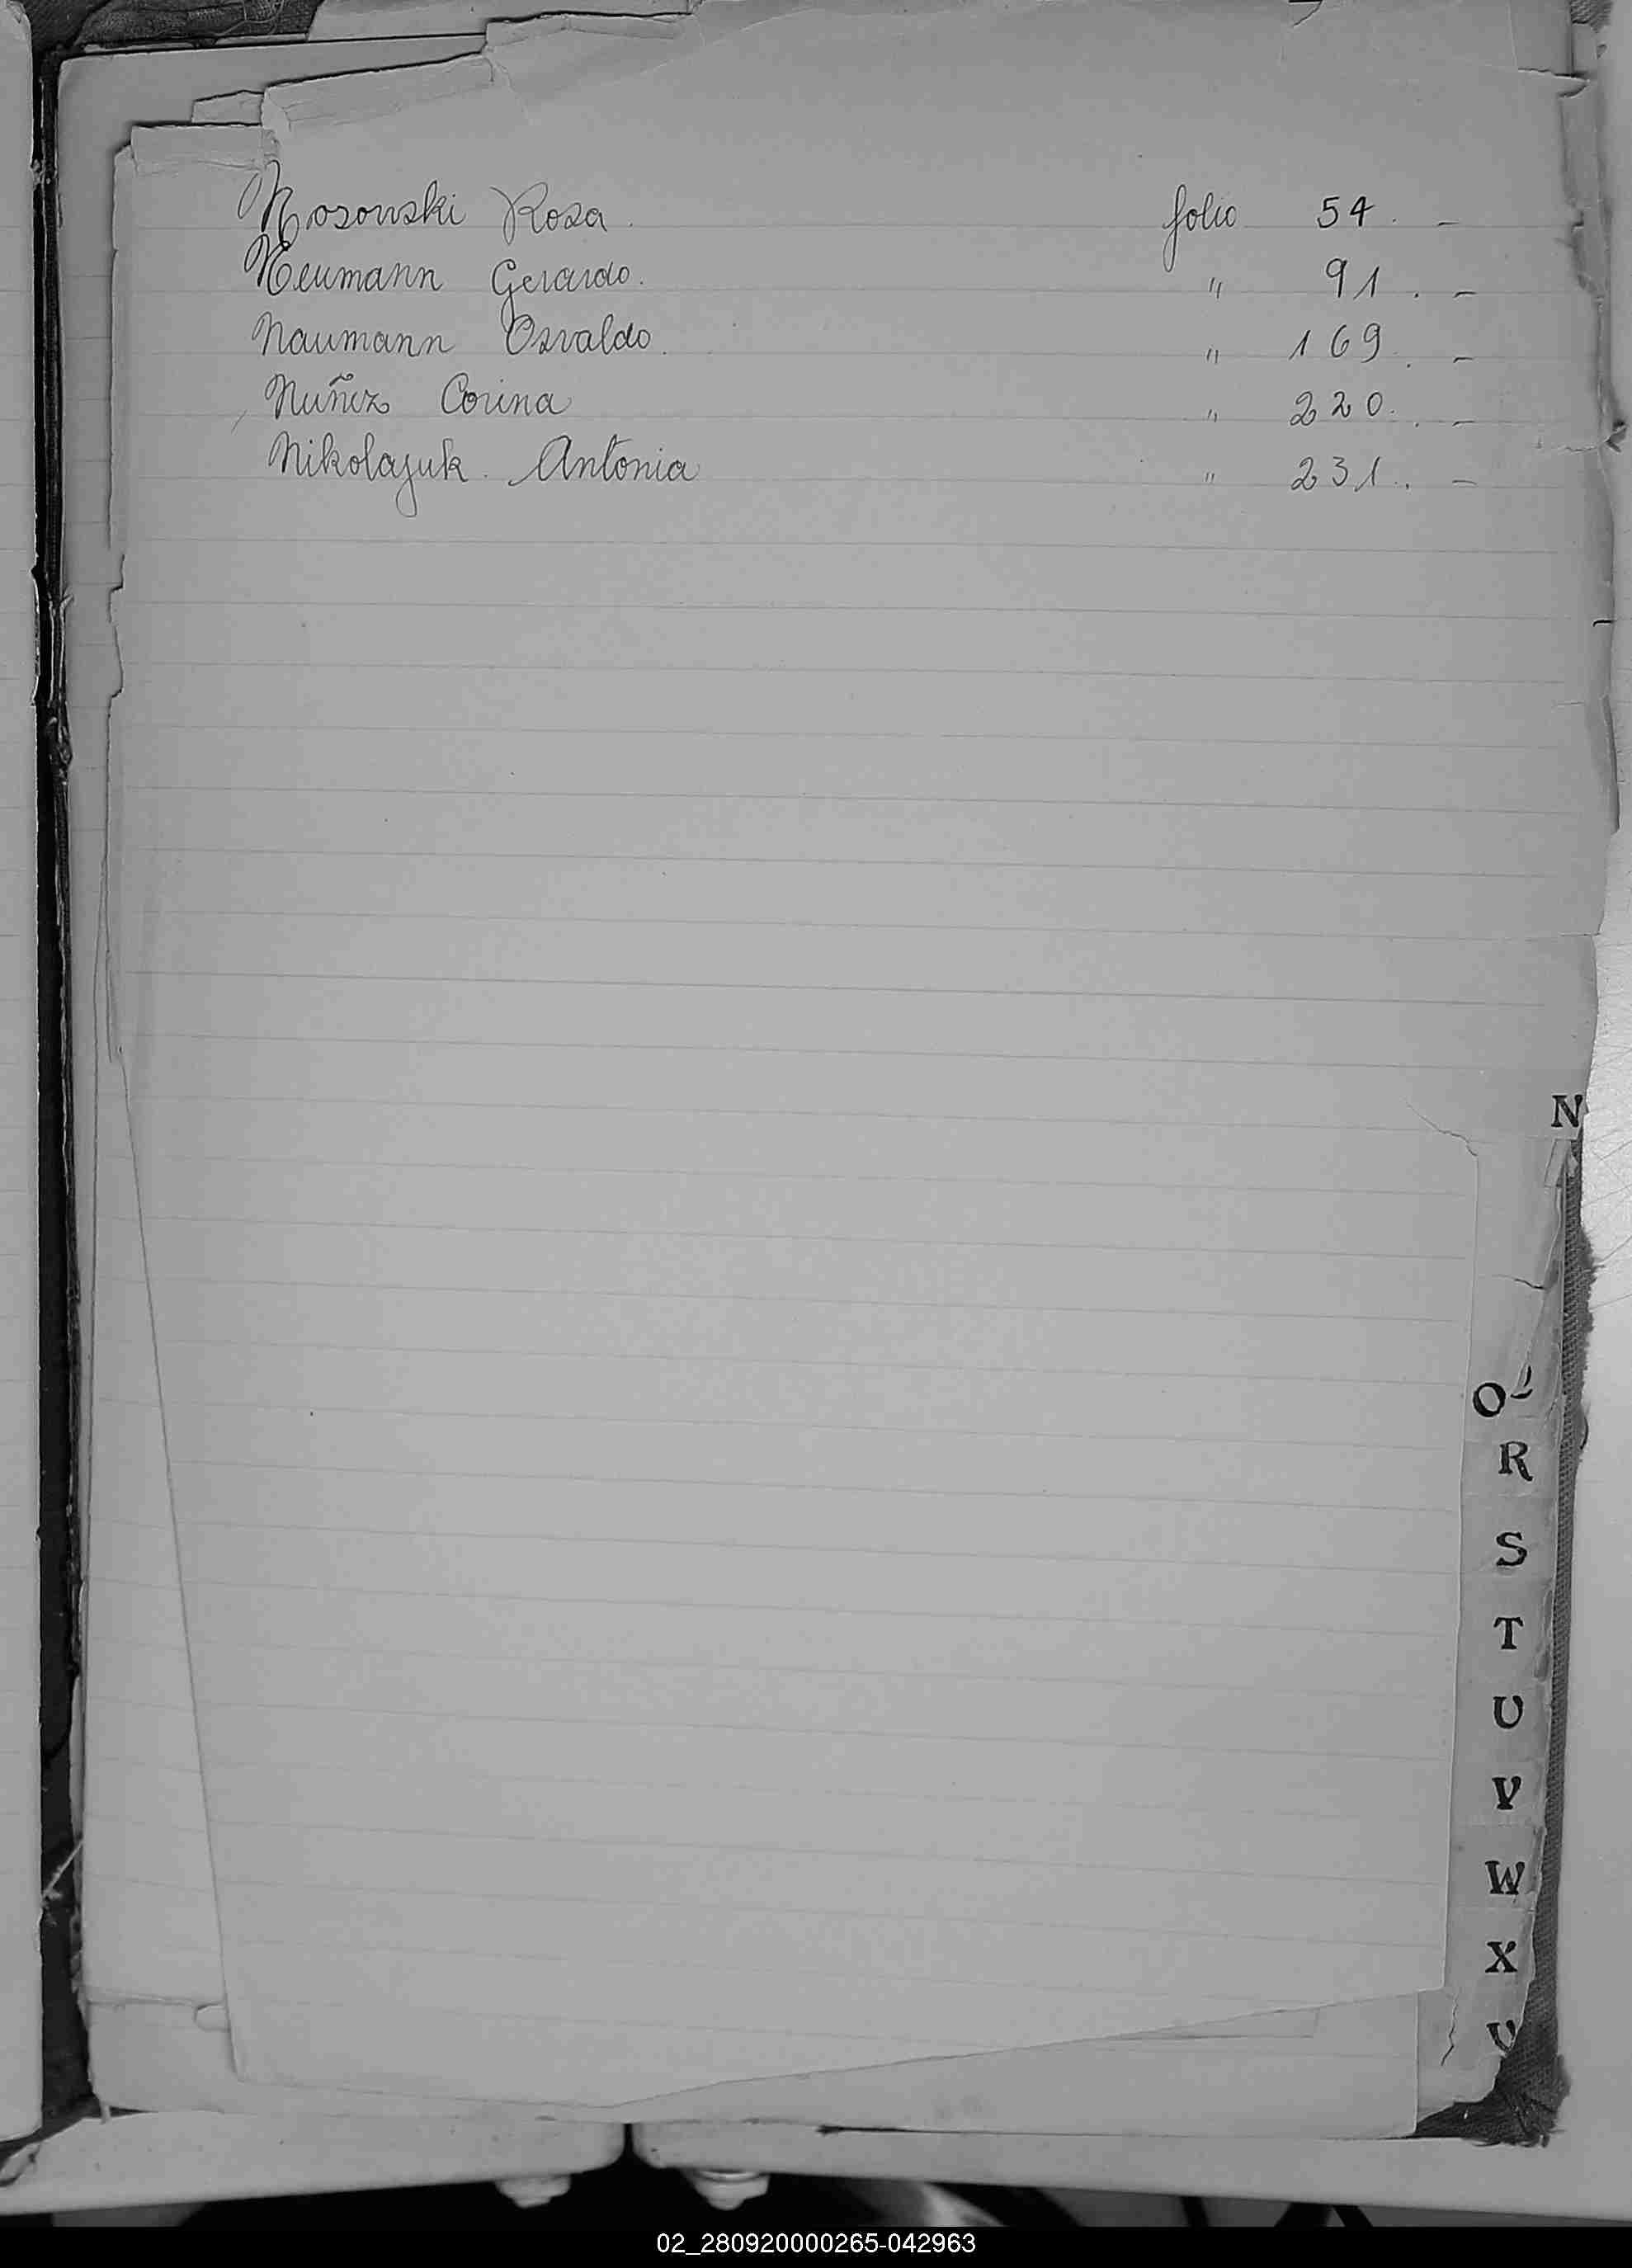 Nosowski Rosa. folio 54. —
Neumann Gerardo. " 91. —
Naumann Osvaldo. " 169. —
Nuñez Corina " 220. —
Nikolajuk. Antonia " 231. —
N
O
R
S
T
U
V
W
X
02_280920000265-042963